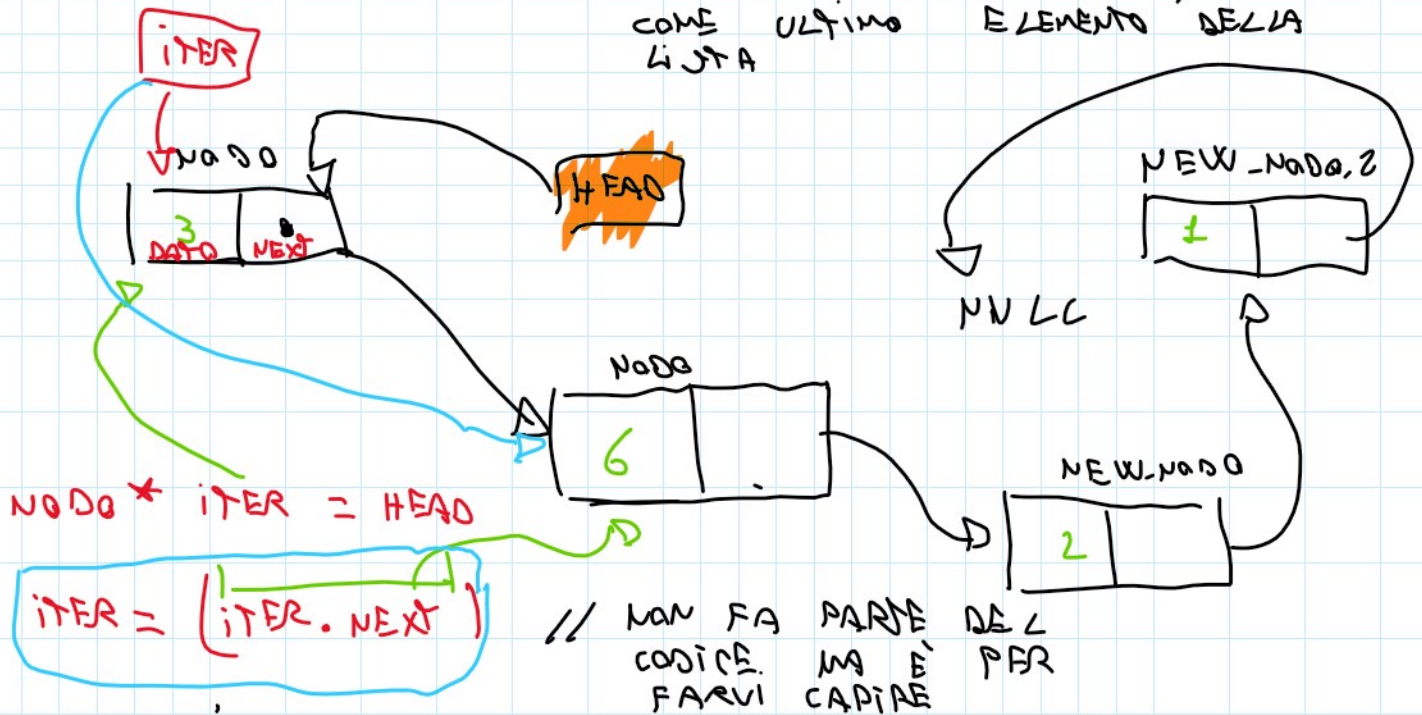 COME ULTIMO ELEMENTO DELLA
LISTA
ITER
NODO
HEAD
3
DATO NEXT
NEW_NODO_2
1
NULL
NODO
6
NEW_NODO
2
NODO * ITER = HEAD
ITER = (ITER . NEXT)
// NON FA PARTE DEL
CODICE. MA È PER
FARVI CAPIRE